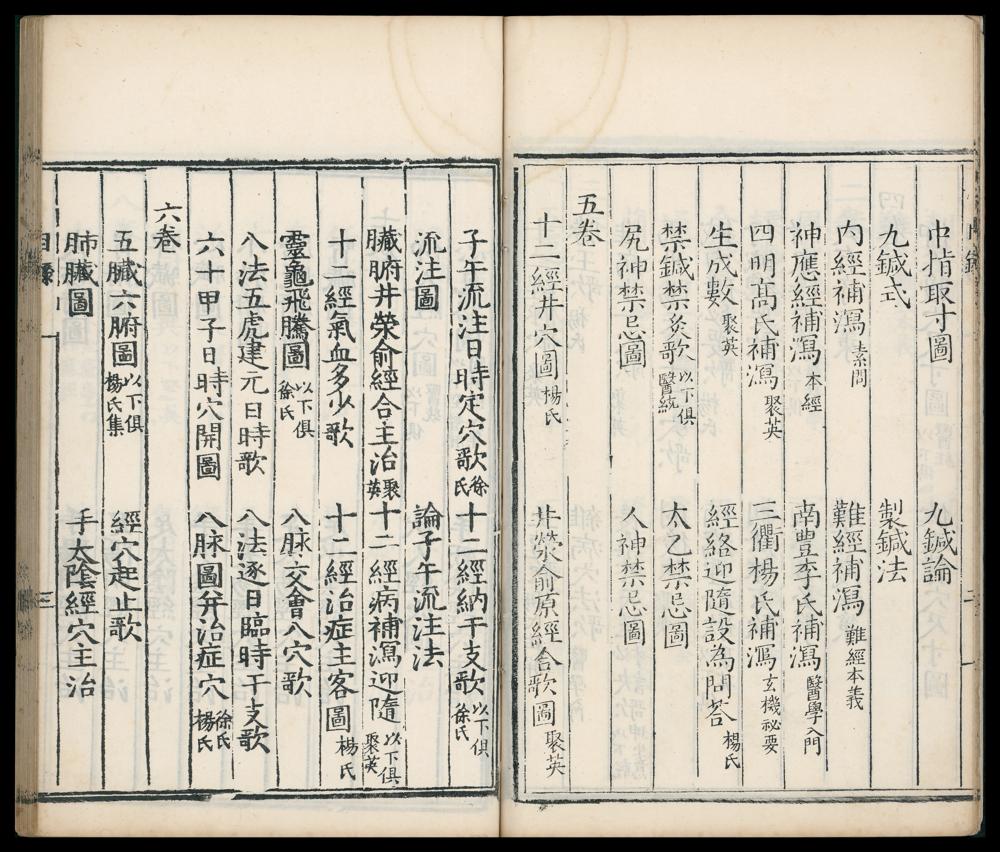 中指取寸圖 九鍼論
九鍼式 製鍼法
內經補瀉 素問 難經補瀉 難經本義
神應經補瀉 本經 南豊李氏補瀉 醫學入門
四明高氏補瀉 聚英 三衢楊氏補瀉 玄機祕要
生成數 聚英 經絡迎隨設為問答 楊氏
禁鍼禁灸歌 以下俱醫統 太乙禁忌圖
尻神禁忌圖 人神禁忌圖
五卷
十二經井穴圖 楊氏 井滎俞原經合歌圖 聚英
子午流注日時定穴歌 徐氏 十二經納干支歌 以下俱徐氏
流注圖 論子午流注法
臟腑井滎俞經合主治 聚英 十二經病補瀉迎隨 以下俱聚英
十二經氣血多少歌 十二經治症主客圖 楊氏
靈龜飛騰圖 以下俱徐氏 八脉交會八穴歌
八法五虎建元日時歌 八法逐日臨時干支歌
六十甲子日時穴開圖 八脉圖并治症穴 徐氏楊氏
六卷
五臟六腑圖 以下俱楊氏集 經穴起止歌
肺臟圖 手太陰經穴主治
目錄 三